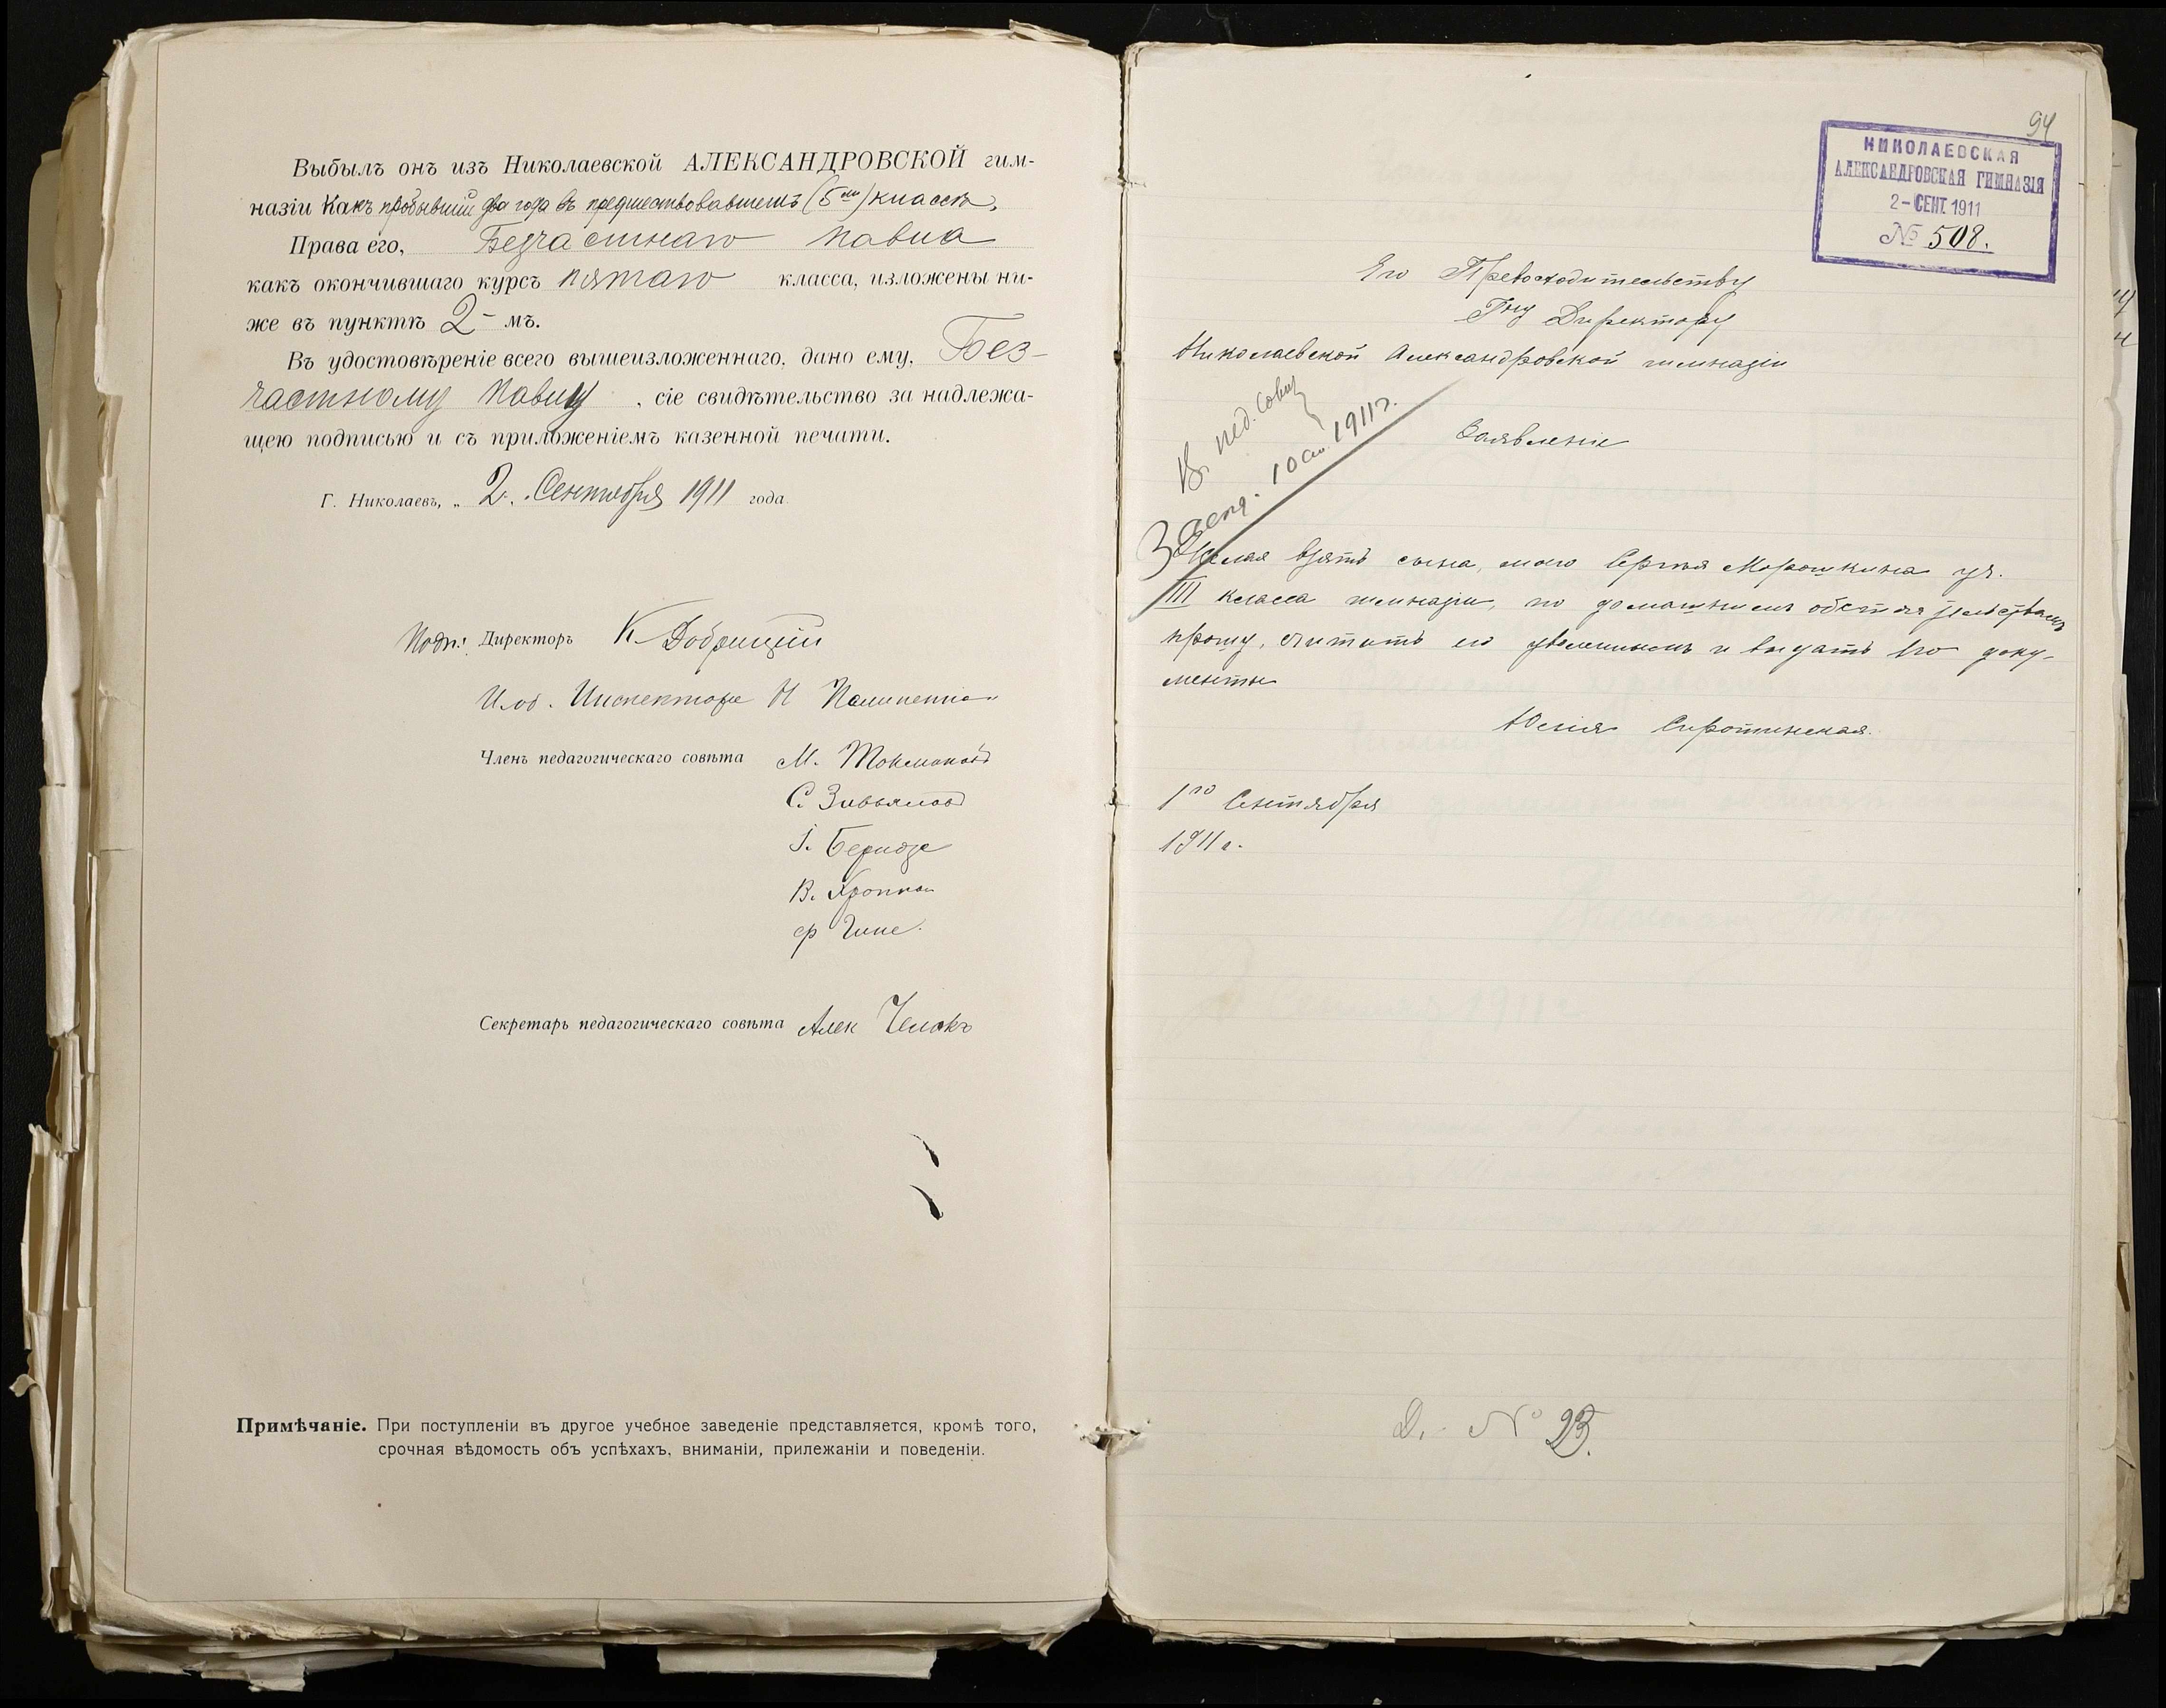 Выбылъ онъ изъ Николаевской АЛЕКСАНДРОВСКОЙ гим-
назіи какъ пробывшій два года въ предшествовавшемъ (5мъ) классѣ.
Права его, Безчастнаго Павла
какъ окончившаго курсъ пятаго класса, изложены ни-
же въ пунктѣ 2- мъ.
Въ удостовѣреніе всего вышеизложеннаго, дано ему, Без-
частному Павлу, сіе свидѣтельство за надлежа-
щею подписью и съ приложеніемъ казенной печати.
Г. Николаевъ, „ 2 „ Сентября 1911 года
Подп.: Директоръ К Добрицкій
И. об. Инспектора И
Членъ педагогическаго совѣта М. Токмаковъ
С.
І.
В.
Ф
Секретарь педагогическаго совѣта Алек
Примѣчаніе. При поступленіи въ другое учебное заведеніе представляется, кромѣ того,
срочная вѣдомость объ успѣхахъ, вниманіи, прилежаніи и поведеніи.
94
НИКОЛАЕВСКАЯ
АЛЕКСАНДРОВСКАЯ ГИМНАЗІЯ
2 - СЕНТ. 1911
№ 508.
Его Превосходительству
Гну Директору
Николаевской Александровской гимназіи
В. пед. Совѣт
Засѣд. 10 1911 г.
Заявленіе
Желая взять сына, моего Сергѣя Морошкина уч.
III класса гимназіи, по домашнимъ обстоятельствамъ
прошу, считать его уволеннымъ и выдать его доку-
менты
Юлія Сиротинская.
1го Сентября
1911 г.
Д. № 23.